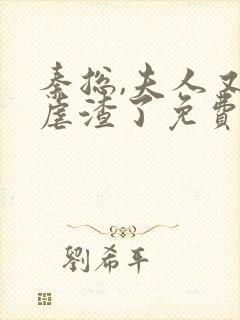 秦总,夫人又
虐渣了免費
劉希平